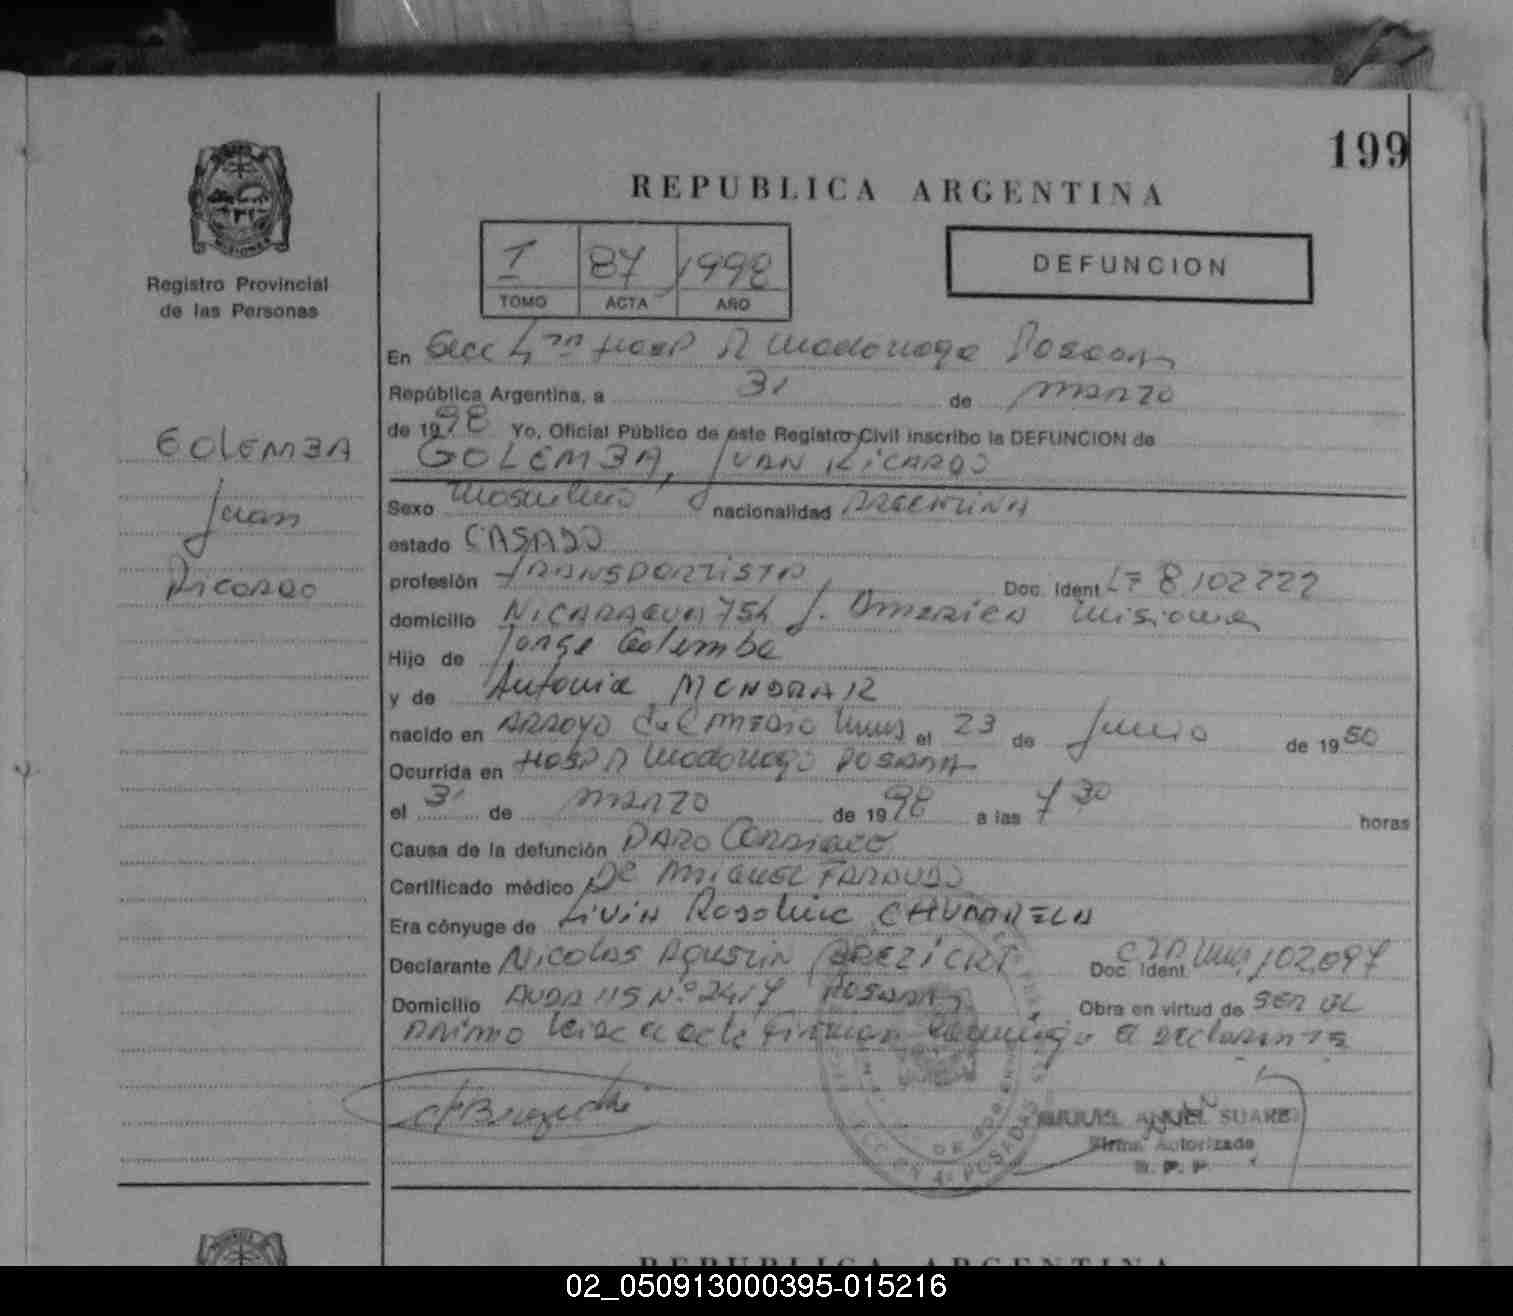 199
REPUBLICA ARGENTINA
Registro Provincial
de las Personas
I 87 1998
TOMO ACTA AÑO
DEFUNCION
En Secc 4ta Hosp R Madariaga Posadas
República Argentina, a 31 de marzo
de 1998 Yo, Oficial Público de este Registro Civil inscribo la DEFUNCION de
GOLEMBA, JUAN RICARDO
GOLEMBA
Juan
Ricardo
Sexo masculino nacionalidad ARGENTINA
estado CASADO
profesión TRANSPORTISTA Doc. Ident LE 8,102222
domicilio NICARAGUA 754 J. America Misiones
Hijo de Jorge Golemba
y de Antonia
nacido en ARROYO del MEDIO el 23 de Junio de 1950
Ocurrida en HOSP R Madariaga POSADAS
el 31 de marzo de 1998 a las 7 30 horas
Causa de la defunción PARO Cardiaco
Certificado médico Dr MIGUEL
Era cónyuge de
Declarante Nicolas Agustin BREZICKI Doc. Ident 102,097
Domicilio AVDA 115 Nº 2417 POSADAS Obra en virtud de SER
leida el acta firman conmigo el declarante
MIGUEL ANGEL SUAREZ
Firma Autorizada
R. P. P.
REPUBLICA ARGENTINA
02_050913000395-015216